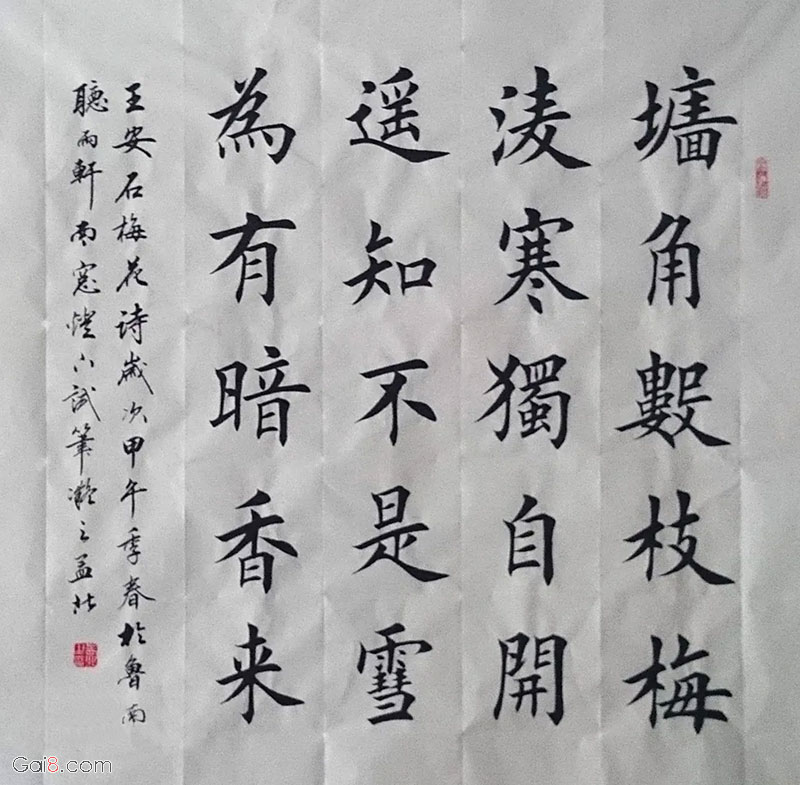 墻角數枝梅
淩寒獨自開
遥知不是雪
為有暗香来
王安石梅花詩歲次甲午季春於魯南
聽雨軒南窓燈下試筆凝之
Gai8.com